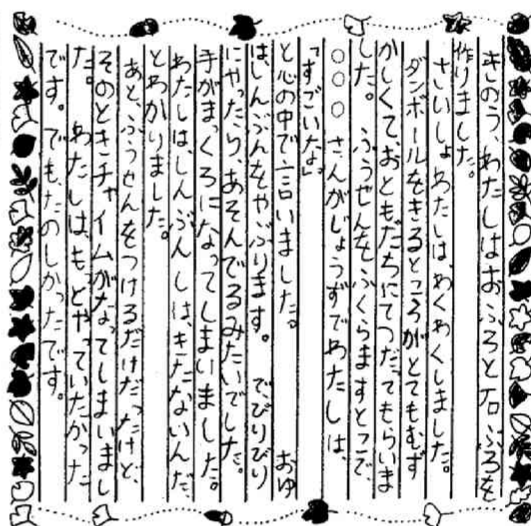 きのう、わたしはおふろと石ぶろを
作りました。
さいしょわたしはわくわくしました。
ダンボールをきるところがとてもむず
かしくて、おともだちにてつだってもらいま
した。 ふうせんをふくらますとこで、
○○○さんがじょうずでわたしは、
「すごいな」
と心の中で言いました。 おゆ
は、しんぶんをやぶります。 で、びりびり
にやったら、あそんでるみたいでした。
手がまっくろになってしまいました。
わたしは、しんぶんしは、きたないんだ
とわかりました。
あと、ふうせんをつけるだけだったけど、
そのときチャイムがなってしまいまし
た。 わたしは、もっとやっていたかった
です。でも、たのしかったです。